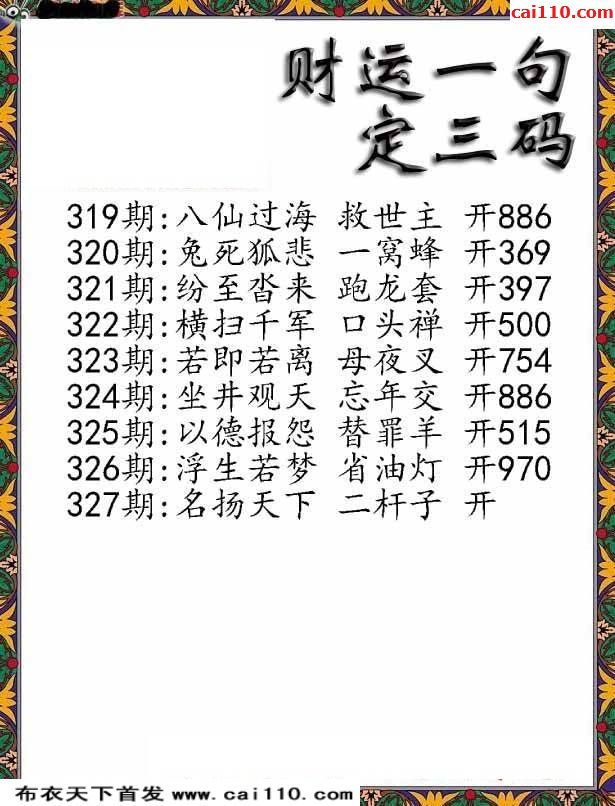 cai110.com
财运一句
定三码
319期:八仙过海 救世主 开886
320期:兔死狐悲 一窝蜂 开369
321期:纷至沓来 跑龙套 开397
322期:横扫千军 口头禅 开500
323期:若即若离 母夜叉 开754
324期:坐井观天 忘年交 开886
325期:以德报怨 替罪羊 开515
326期:浮生若梦 省油灯 开970
327期:名扬天下 二杆子 开
布衣天下首发 www.cai110.com